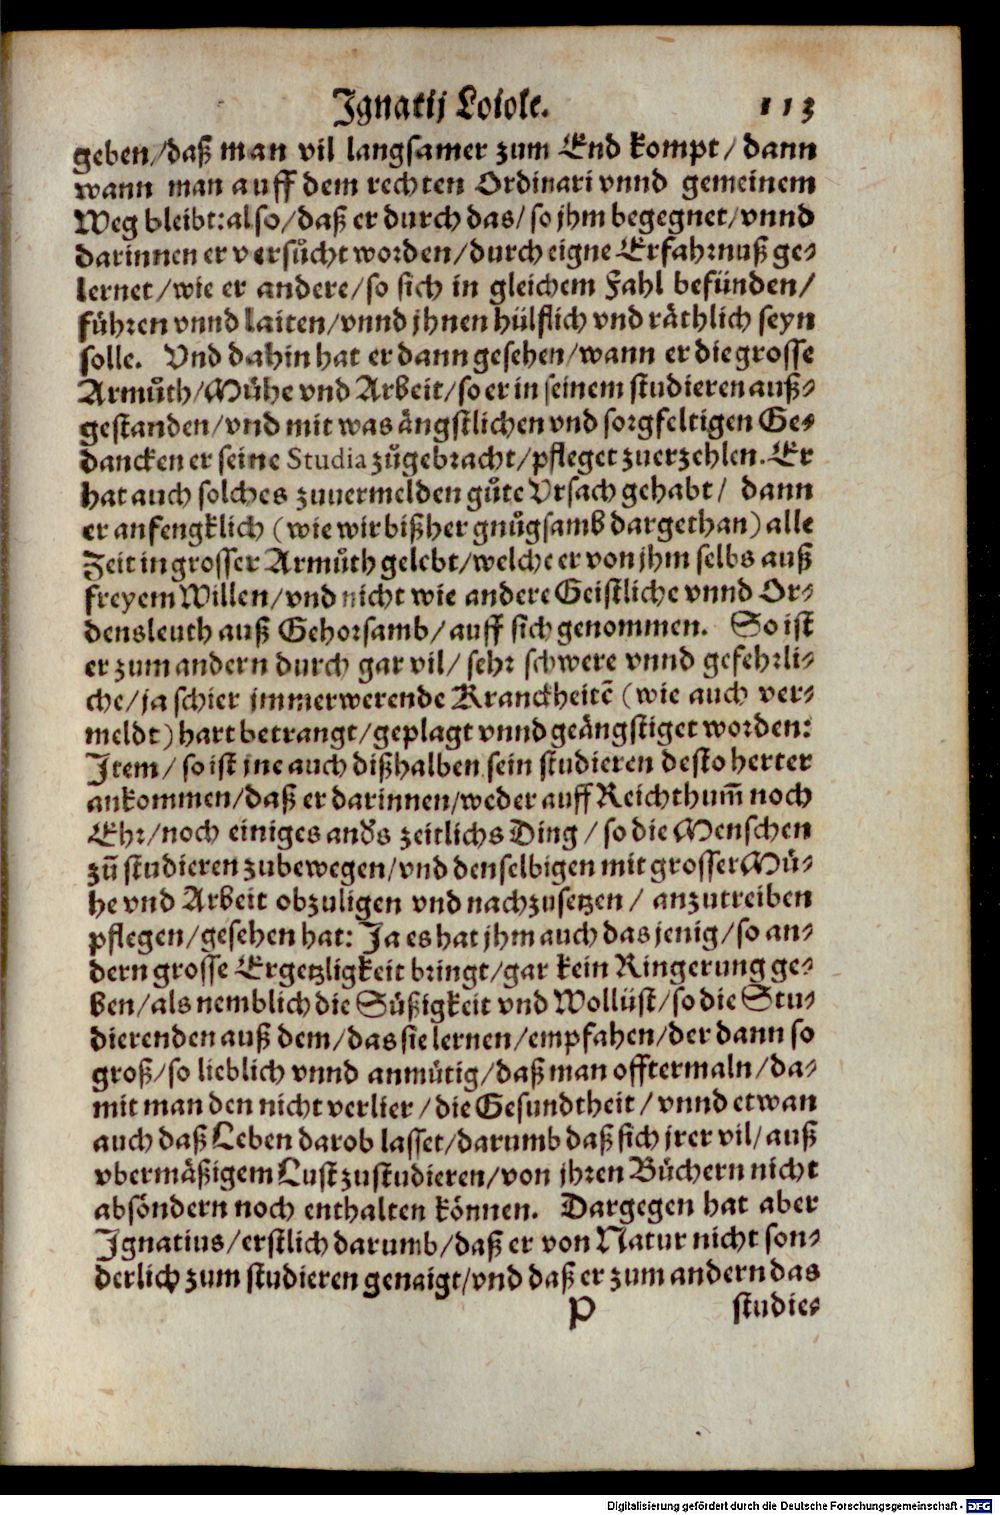 Ignatij Loiolę. 113
geben/daß man vil langsamer zum End kompt/ dann
wann man auff dem rechten Ordinari vnnd gemeinem
Weg bleibt: also/daß er durch das/ so jhm begegnet/vnnd
darinnen er versůcht worden/durch eigne Erfahrnuß ge-
lernet/wie er andere/so sich in gleichem Fahl befünden/
führen vnnd laiten/vnnd jhnen hülflich vnd räthlich seyn
solle. Vnd dahin hat er dann gesehen/wann er die grosse
Armůth/Mühe vnd Arbeit/so er in seinem studieren auß-
gestanden/vnd mit was ängstlichen vnd sorgfeltigen Ge-
dancken er seine Studia zůgebracht/pfleget zuerzehlen. Er
hat auch solches zuuermelden gůte Vrsach gehabt/ dann
er anfengklich (wie wir bißher gnůgsamb dargethan) alle
Zeit in grosser Armůth gelebt/welche er von jhm selbs auß
freyem Willen/vnd nicht wie andere Geistliche vnnd Or-
densleuth auß Gehorsamb/auff sich genommen. So ist
er zum andern durch gar vil/ sehr schwere vnnd gefehrli-
che/ja schier jmmerwerende Kranckheitē (wie auch ver-
meldt) hart betrangt/geplagt vnnd geängstiget worden:
Item/ so ist jne auch dißhalben sein studieren desto herter
ankommen/daß er darinnen/weder auff Reichthum̄ noch
Ehr/noch einiges anďs zeitlichs Ding/ so die Menschen
zů studieren zubewegen/vnd denselbigen mit grosser Mü-
he vnd Arbeit obzuligen vnd nachzusetzen/ anzutreiben
pflegen/gesehen hat: Ja es hat jhm auch das jenig/so an-
dern grosse Ergetzligkeit bringt/gar kein Ringerung ge-
ben/als nemblich die Süßigkeit vnd Wollüst/so die Stu-
dierenden auß dem/das sie lernen/empfahen/der dann so
groß/so lieblich vnnd anmütig/daß man offtermaln/da-
mit man den nicht verlier/die Gesundtheit/vnnd etwan
auch daß Leben darob lasset/darumb daß sich jrer vil/auß
vbermäßigem Lust zustudieren/von jhren Büchern nicht
absöndern noch enthalten können. Dargegen hat aber
Ignatius/erstlich darumb/daß er von Natur nicht son-
derlich zum studieren genaigt/vnd daß er zum andern das
P studie-
Digitalisierung gefördert durch die Deutsche Forschungsgemeinschaft - DFG